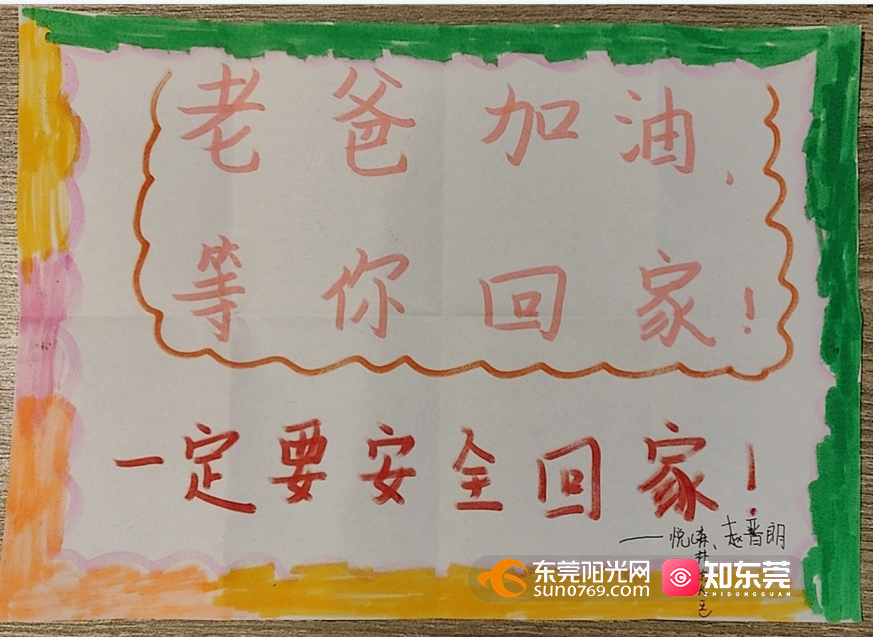 老爸加油,
等你回家!
一定要安全回家!
——悦、赵晋朗
东莞阳光网
sun0769.com
知东莞
ZHIDONGGUAN